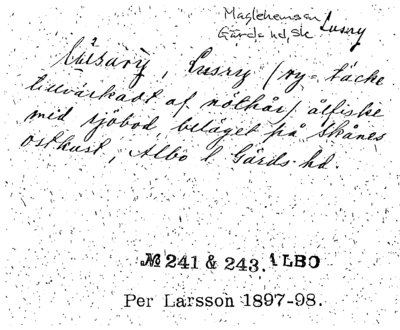 Maglehems sn Lusry
Gärds hd, Sk
Lusary, Lusry (ry = täcke
tillvärkadt af nöthår) ålfiske
med sjöbod, beläget på Skånes
ostkust, Albo l. Gärds hd.
№ 241 & 243. ALBO
Per Larsson 1897-98.